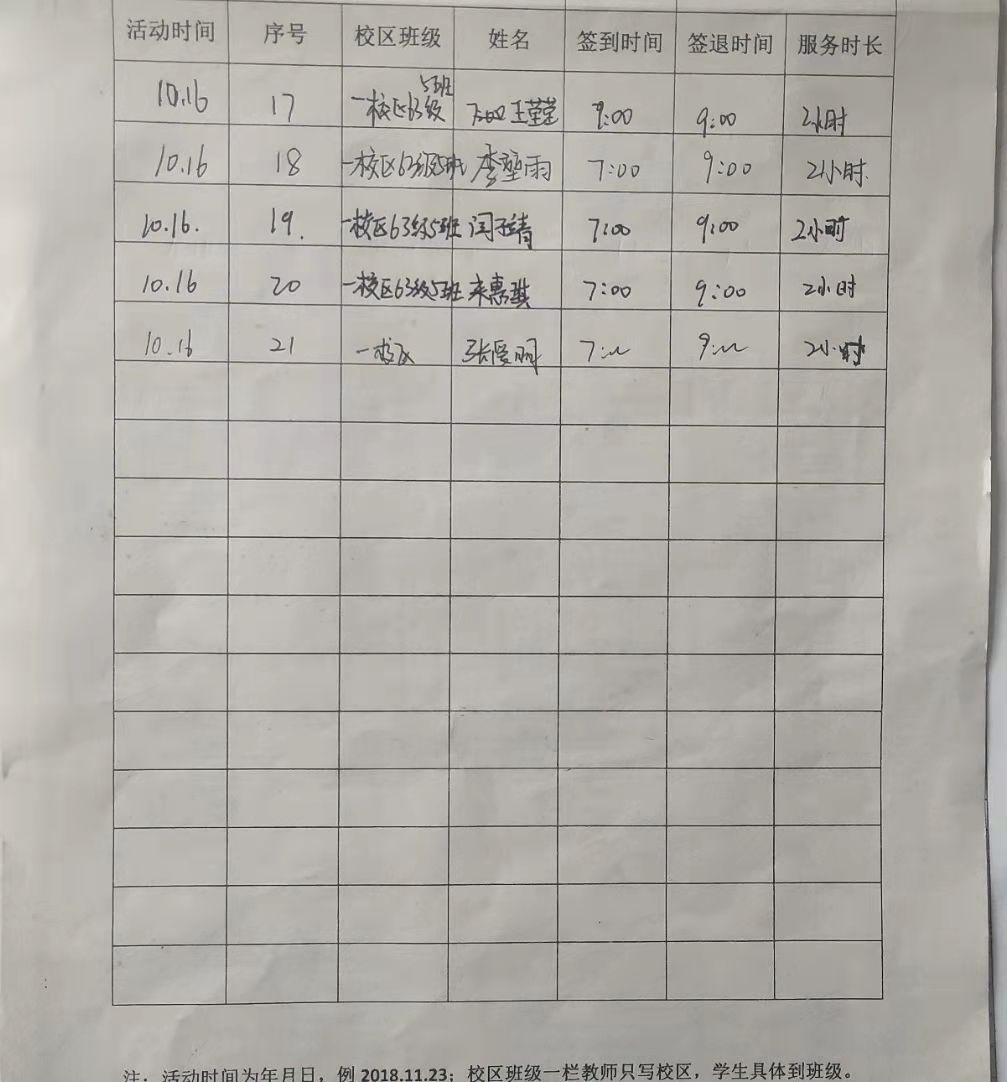 活动时间 序号 校区班级 姓名 签到时间 签退时间 服务时长
10.16 17 一校区63级5班 王莹莹 9:00 9:00 2小时
10.16 18 一校区63级5班 李堃雨 7:00 9:00 2小时.
10.16. 19. 一校区63级5班 闫子靖 7:00 9:00 2小时
10.16 20 一校区63级5班 来惠琪 7:00 9:00 2小时
10.16 21 一校区 7:00 9:00 2小时
注：活动时间为年月日，例 2018.11.23；校区班级一栏教师只写校区，学生具体到班级。